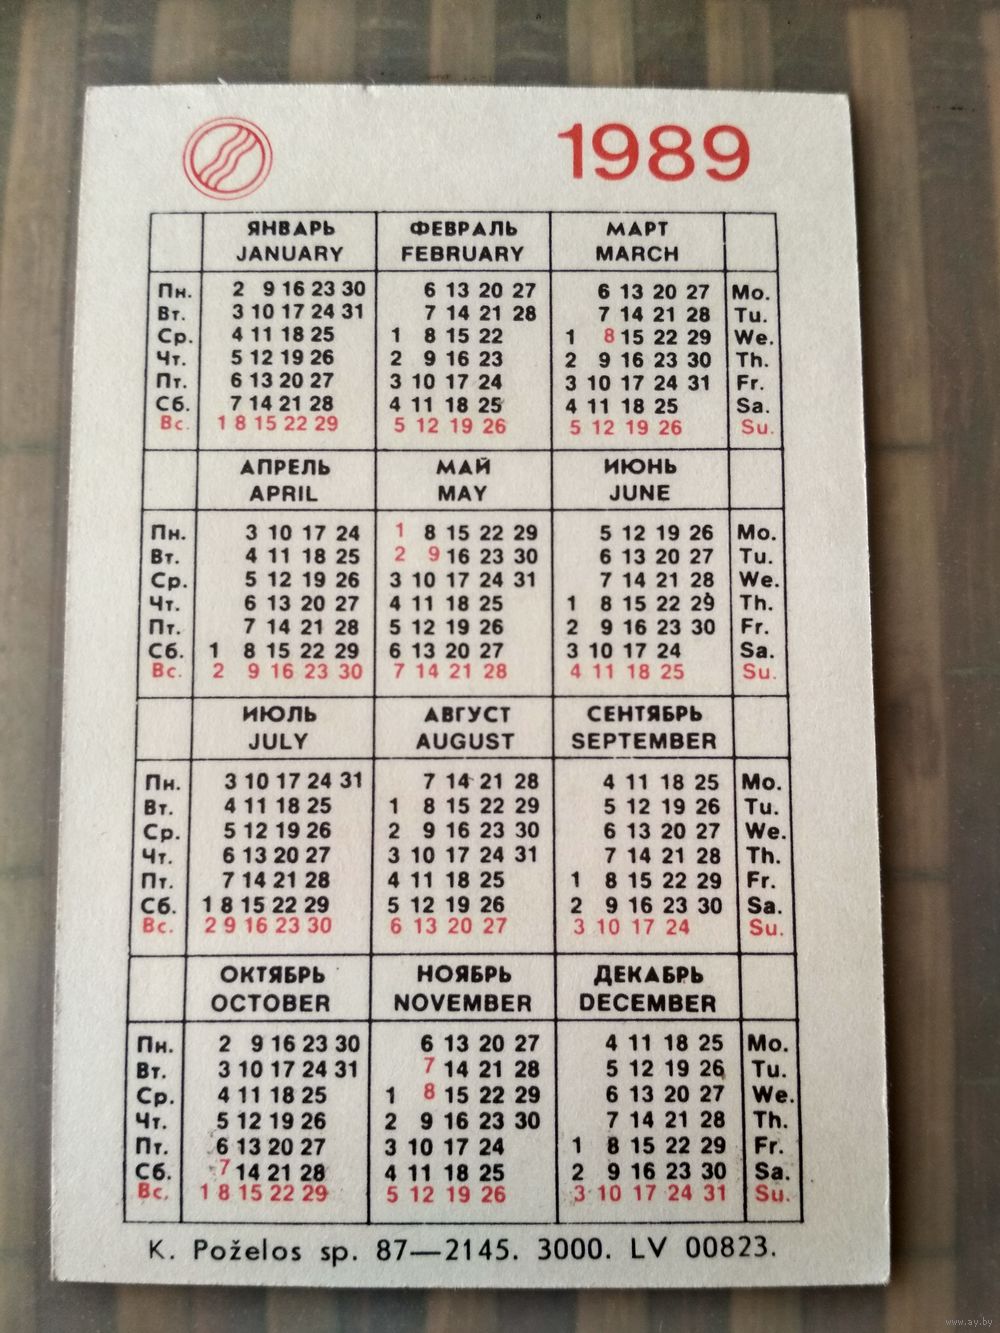 1989
ЯНВАРЬ ФЕВРАЛЬ МАРТ
JANUARY FEBRUARY MARCH
Пн. 2 9 16 23 30 6 13 20 27 6 13 20 27 Mo.
Вт. 3 10 17 24 31 7 14 21 28 7 14 21 28 Tu.
Ср. 4 11 18 25 1 8 15 22 1 8 15 22 29 We.
Чт. 5 12 19 26 2 9 16 23 2 9 16 23 30 Th.
Пт. 6 13 20 27 3 10 17 24 3 10 17 24 31 Fr.
Сб. 7 14 21 28 4 11 18 25 4 11 18 25 Sa.
Вс. 1 8 15 22 29 5 12 19 26 5 12 19 26 Su.
АПРЕЛЬ МАЙ ИЮНЬ
APRIL MAY JUNE
Пн. 3 10 17 24 1 8 15 22 29 5 12 19 26 Mo.
Вт. 4 11 18 25 2 9 16 23 30 6 13 20 27 Tu.
Ср. 5 12 19 26 3 10 17 24 31 7 14 21 28 We.
Чт. 6 13 20 27 4 11 18 25 1 8 15 22 29 Th.
Пт. 7 14 21 28 5 12 19 26 2 9 16 23 30 Fr.
Сб. 1 8 15 22 29 6 13 20 27 3 10 17 24 Sa.
Вс. 2 9 16 23 30 7 14 21 28 4 11 18 25 Su.
ИЮЛЬ АВГУСТ СЕНТЯБРЬ
JULY AUGUST SEPTEMBER
Пн. 3 10 17 24 31 7 14 21 28 4 11 18 25 Mo.
Вт. 4 11 18 25 1 8 15 22 29 5 12 19 26 Tu.
Ср. 5 12 19 26 2 9 16 23 30 6 13 20 27 We.
Чт. 6 13 20 27 3 10 17 24 31 7 14 21 28 Th.
Пт. 7 14 21 28 4 11 18 25 1 8 15 22 29 Fr.
Сб. 1 8 15 22 29 5 12 19 26 2 9 16 23 30 Sa.
Вс. 2 9 16 23 30 6 13 20 27 3 10 17 24 Su.
ОКТЯБРЬ НОЯБРЬ ДЕКАБРЬ
OCTOBER NOVEMBER DECEMBER
Пн. 2 9 16 23 30 6 13 20 27 4 11 18 25 Mo.
Вт. 3 10 17 24 31 7 14 21 28 5 12 19 26 Tu.
Ср. 4 11 18 25 1 8 15 22 29 6 13 20 27 We.
Чт. 5 12 19 26 2 9 16 23 30 7 14 21 28 Th.
Пт. 6 13 20 27 3 10 17 24 1 8 15 22 29 Fr.
Сб. 7 14 21 28 4 11 18 25 2 9 16 23 30 Sa.
Вс. 1 8 15 22 29 5 12 19 26 3 10 17 24 31 Su.
K. Poželos sp. 87—2145. 3000. LV 00823.
www.ay.by